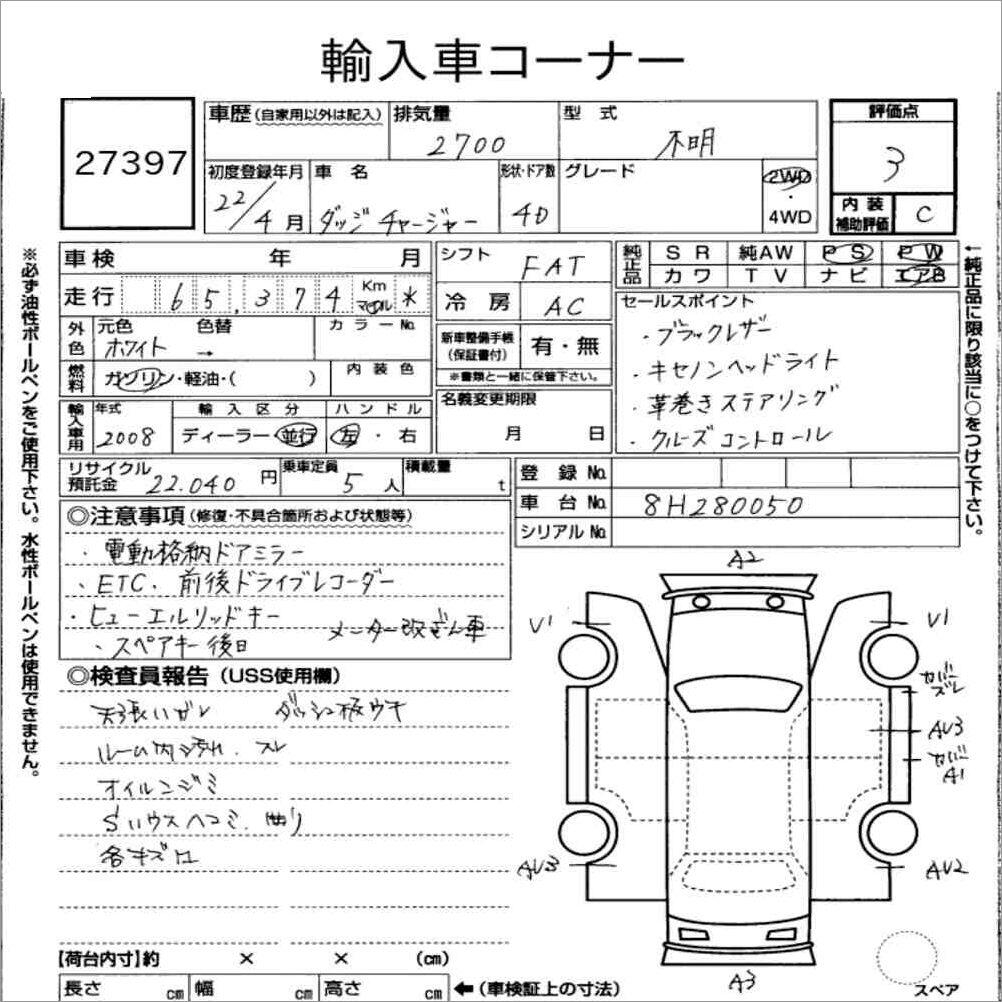 輸入車コーナー
27397
車歴(自家用以外は記入) 排気量 2700 型式 不明 評価点 3
初度登録年月 22/4月 車名 ダッジ チャージャー 形状・ドア数 4D グレード 2WD・4WD 内装補助評価 C
車検 年 月 シフト FAT 純正品 SR 純AW PS PW
カワ TV ナビ エアB
走行 65,374 Km マイル * 冷房 AC セールスポイント
外色 元色 ホワイト 色替 → カラーNo. 新車整備手帳(保証書付) 有・無
※書類と一緒に保管下さい。
・ブラックレザー
・キセノンヘッドライト
・革巻きステアリング
・クルーズコントロール
燃料 ガソリン・軽油・( ) 内装色 名義変更期限 月 日
輸入車用 年式 2008 輸入区分 ディーラー・並行 ハンドル 左・右
リサイクル預託金 22.040円 乗車定員 5人 積載量 t 登録No.
車台No. 8H280050
シリアルNo.
◎注意事項(修復・不具合箇所および状態等)
・電動格納ドアミラー
・ETC.前後ドライブレコーダー
・ヒューエルリッドキー
・スペアキー後日 メーター改ざん車
◎検査員報告(USS使用欄)
天張りハガレ ダッシュ板ウキ
ルーム内汚れ.スレ
オイルニジミ
Sハウスヘコミ.曲り
各キズ
A2
V1 V1
カバーズレ
AU3
カバーA1
AU3 AU2
A3
スペア
【荷台内寸】約 × × (cm)
長さ cm 幅 cm 高さ cm ←(車検証上の寸法)
※必ず油性ボールペンをご使用下さい。水性ボールペンは使用できません。
←純正品に限り該当に○をつけて下さい。